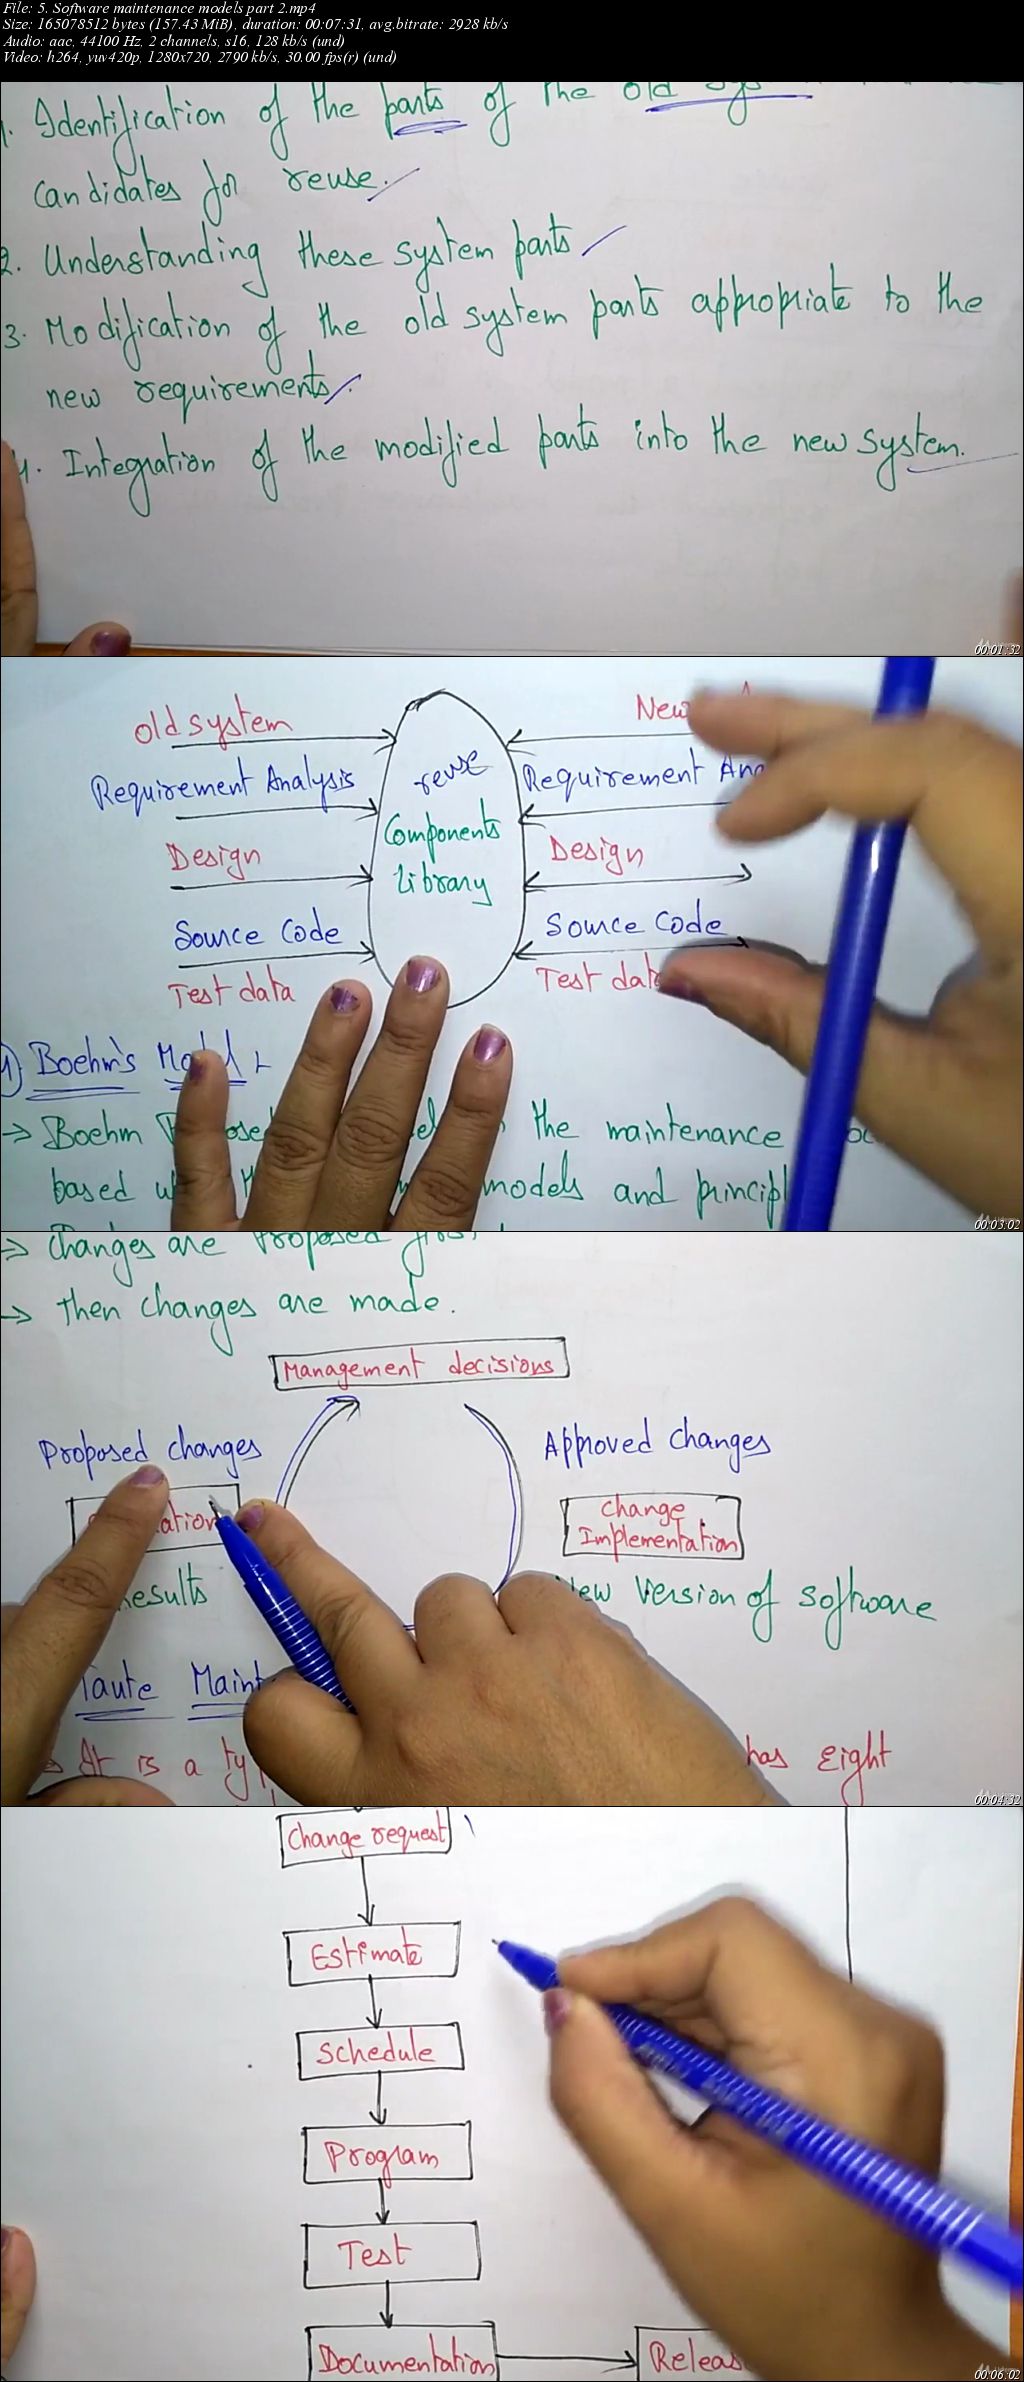 File: 5. Software maintenance models part 2.mp4
Size: 165078512 bytes (157.43 MiB), duration: 00:07:31, avg.bitrate: 2928 kb/s
Audio: aac, 44100 Hz, 2 channels, s16, 128 kb/s (und)
Video: h264, yuv420p, 1280x720, 2790 kb/s, 30.00 fps(r) (und)
1. Identification of the parts of the old
candidates for reuse.
2. Understanding these system parts
3. Modification of the old system parts appropriate to the
new requirements.
4. Integration of the modified parts into the new system.
00:01:32
old system
New
Requirement Analysis
reuse
Requirement
Components
Design
Design
Library
Source Code
Source Code
Test data
Test data
Boehm's Model
→ Boehm the maintenance
based models and
00:03:02
→ Changes are Proposed
→ then changes are made.
Management decisions
Proposed changes
Approved Changes
Change
Implementation
Results
New Version of Software
Taute
It is a has Eight
00:04:32
Change request
Estimate
Schedule
Program
Test
Documentation
00:06:02